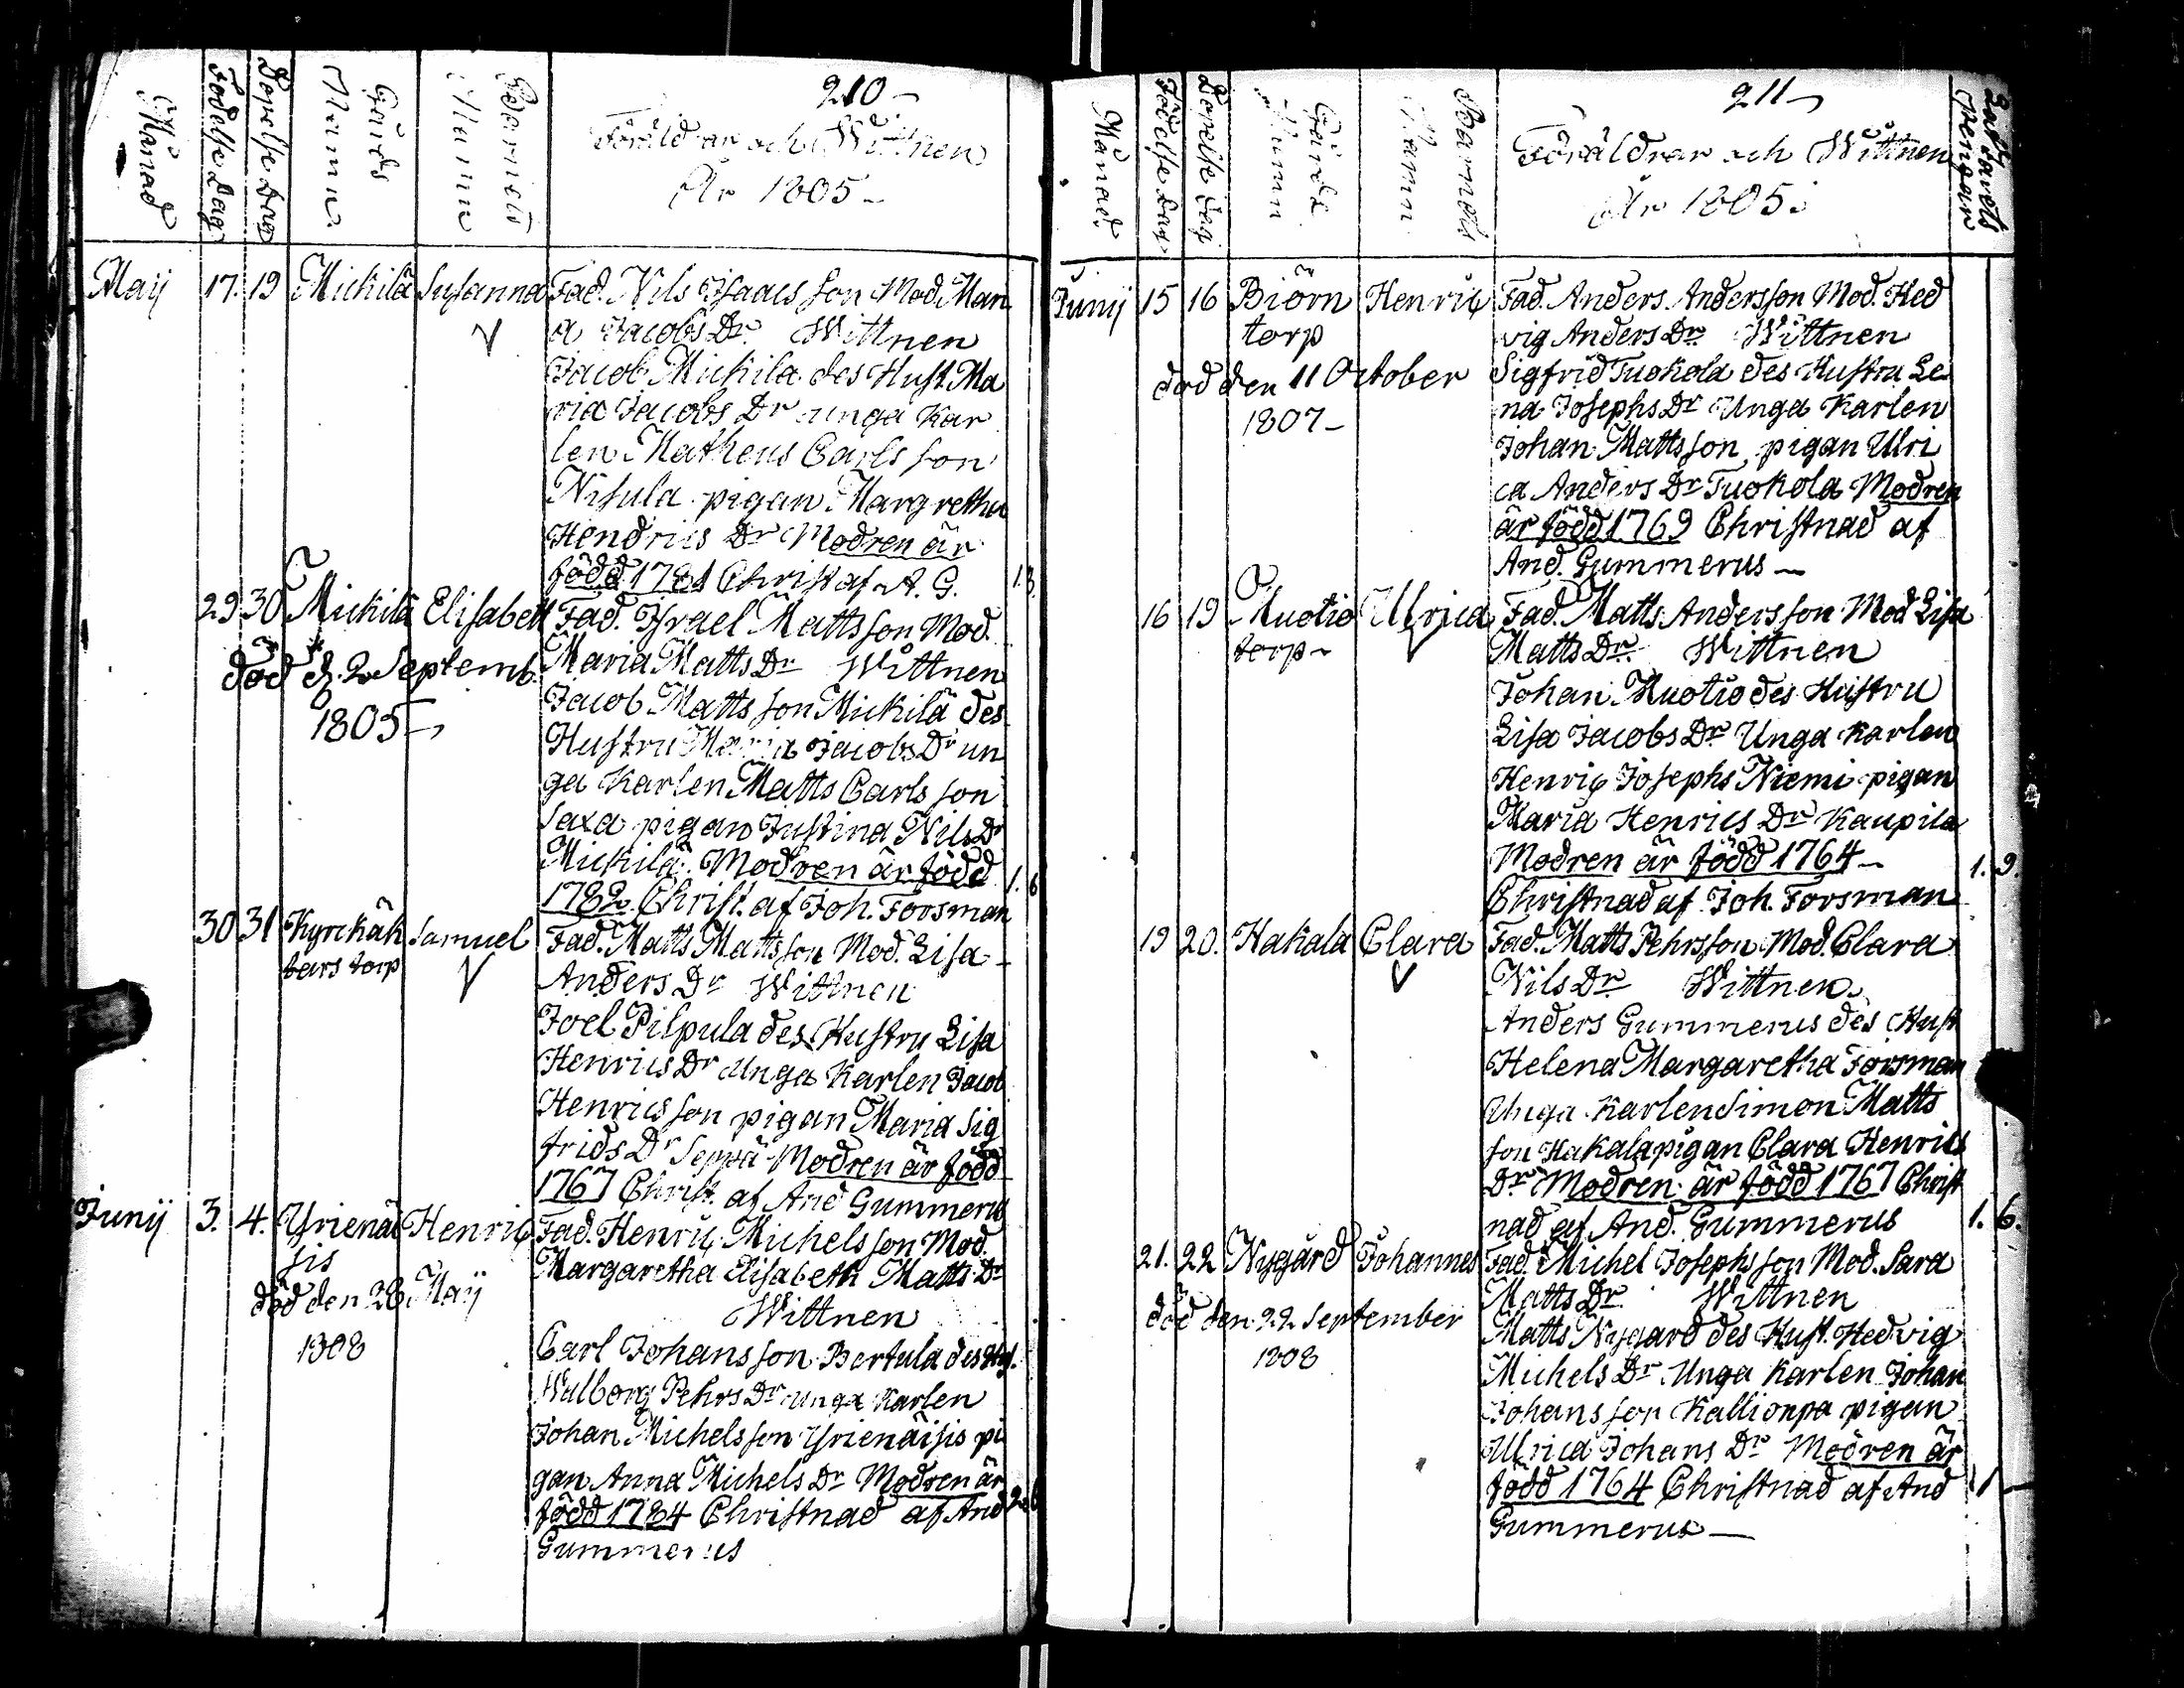 210
Månad
Födelse Dag
Döpelse Dag
Gårds Namn
Barnets Namn
Föräldrar och Wittnen
År 1805
Maij 17. 19 Mickilä Susanna Fad. Nils Isaacs son Mod. Mari
a Jacobs Dr Wittnen
Jacob Mickilä des Hust. Ma
ria Jacobs Dr unga Kar
len Matheus Carls son
Nisula pigan Margretha
Hendrics Dr Modren är
född 1781 Christ af A. G.
29 30 Mickilä Elisabeth Fad. Israel Matts son Mod.
Maria Matts Dr Wittnen
död d. 2 Septemb.
1805
Jacob Matts son Mickilä des
Hustru Maria Jacobs Dr un
ga Karlen Matts Carls son
Saxa pigan Justina Nils Dr
Mickilä. Modren är född
1782 Christ. af Joh. Forsman
1. 6
30 31 Kyrckäk Samuel Fad. Matts Matts son Mod. Lisa
tars torp
Anders Dr Wittnen
Joel Pilpula des Hustru Lisa
Henrics Dr Unga Karlen Jacob
Henrics son pigan Maria Sig
frids Dr Seppä Modren är född
1767 Christ. af And Gummerus
Junij 3. 4. Yrienäi Henric Fad. Henric Michels son Mod.
sis
Margaretha Elisabeth Matts Dr
död den 28 Maij
1808
Wittnen
Carl Johans son Bertula des Hust.
Walborg Pehrs Dr unga Karlen
Johan Michels son Yrienäisis pi
gan Anna Michels Dr Modren är
född 1784 Christnad af And
Gummerus
211
Månad
Födelse Dag
Döpelse Dag
Gårds Namn
Barnets Namn
Föräldrar och Wittnen
År 1805
Junij 15 16 Biörn Henric Fad. Anders Andersson Mod. Hed
torp
vig Anders Dr Wittnen
död den 11 October
1807
Sigfrid Tuokola des Hustru Le
na Josephs Dr Unga Karlen
Johan Matts son pigan Ulri
ca Anders Dr Tuokola Modren
är född 1769 Christnad af
And. Gummerus
16 19 Muotio Ulrica Fad. Matts Anders son Mod. Lisa
torp
Matts Dr Wittnen
Johan Muotio des Hustru
Lisa Jacobs Dr Unga Karlen
Henric Josephs Niemi pigan
Maria Henrics Dr Kaupila
Modren är född 1764
1. 9.
Christnad af Joh. Forsman
19 20. Hakala Clara Fad. Matts Pehrsson Mod. Clara
Nils Dr Wittnen
Anders Gummerus des Hust
Helena Margaretha Forsman
Unga Karlen Simon Matts
son Hakala pigan Clara Henrics
Dr Modren är född 1767 Christ
nad af And. Gummerus
1. 6.
21. 22 Nygård Johannes Fad. Michel Josephs son Mod. Sara
Matts Dr Wittnen
död den 22 September
1808
Matts Nygård des Hust. Hedvig
Michels Dr Unga Karlen Johan
Johans son Kallionpä pigan
Ulrica Johans Dr Modren är
född 1764 Christnad af And
Gummerus